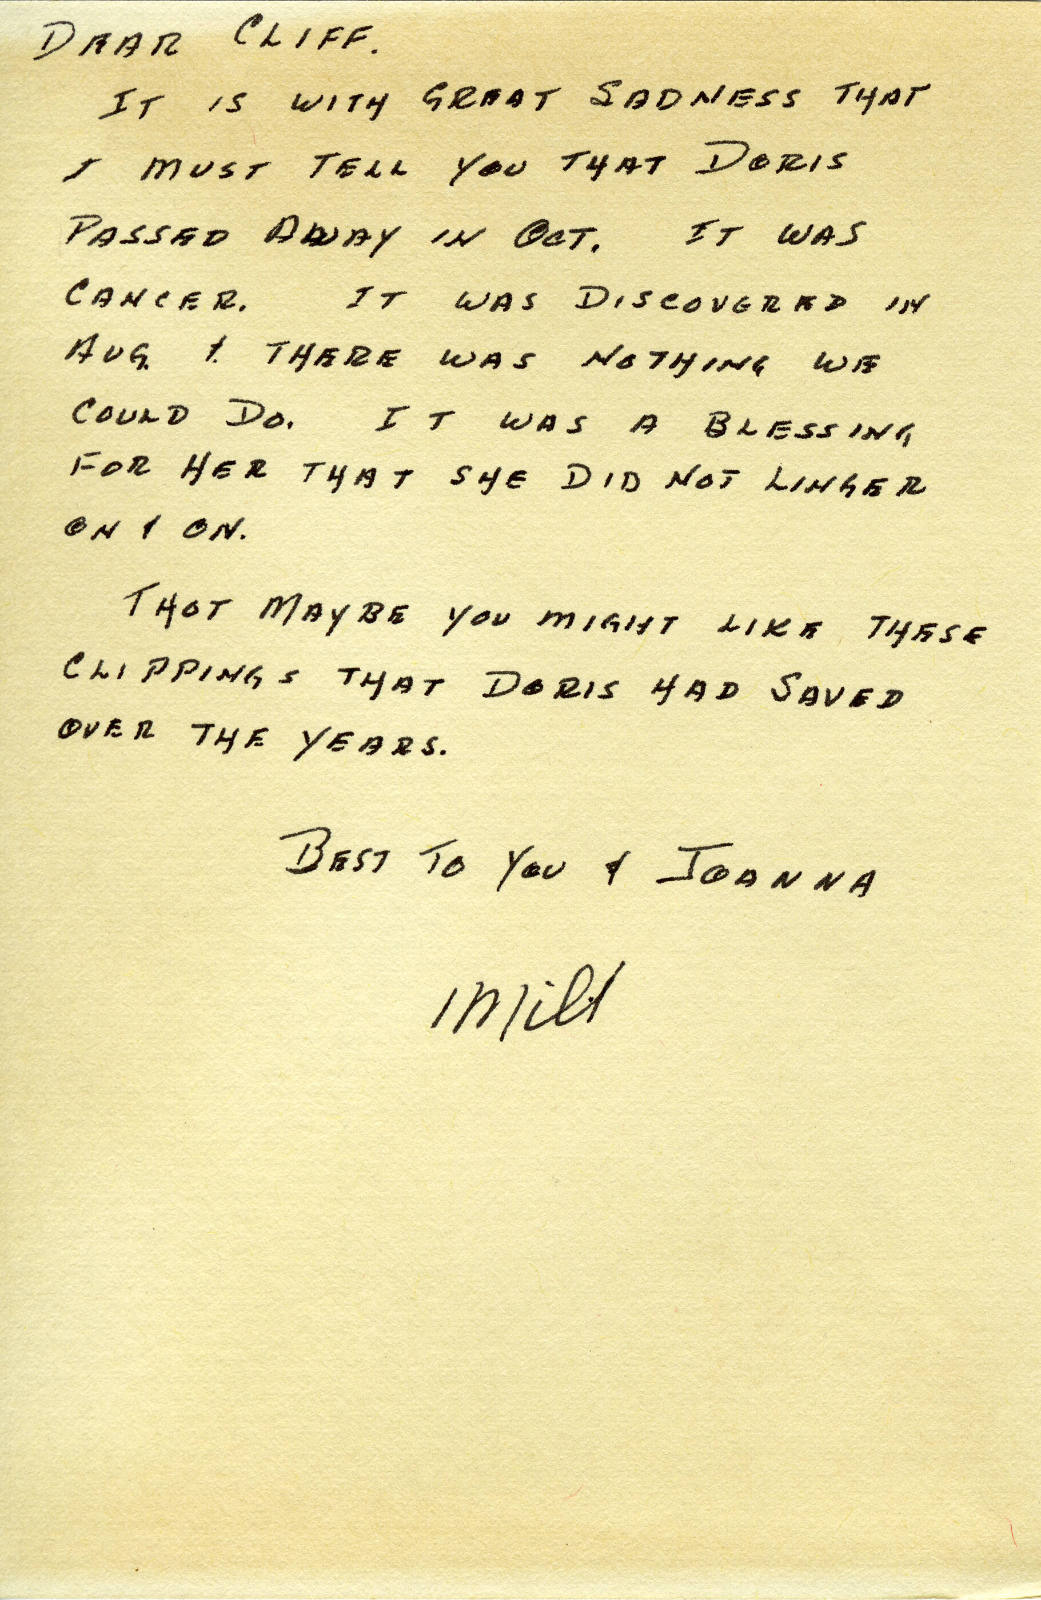 DEAR CLIFF.
IT IS WITH GREAT SADNESS THAT
I MUST TELL YOU THAT DORIS
PASSED AWAY IN OCT. IT WAS
CANCER. IT WAS DISCOVERED IN
AUG. & THERE WAS NOTHING WE
COULD DO. IT WAS A BLESSING
FOR HER THAT SHE DID NOT LINGER
ON & ON.
THOT MAYBE YOU MIGHT LIKE THESE
CLIPPINGS THAT DORIS HAD SAVED
OVER THE YEARS.
BEST TO YOU & JOANNA
Milt